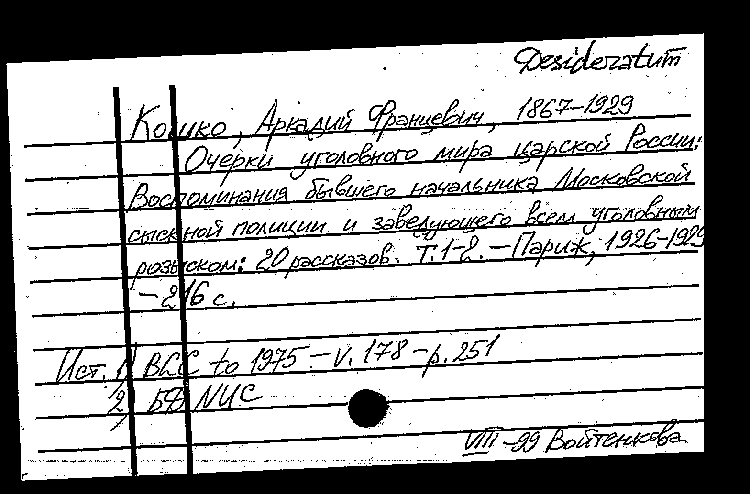 Desideratum
Кошко, Аркадий Францевич, 1867-1929
Очерки уголовного мира царской России:
Воспоминания бывшего начальника Московской
сыскной полиции и заведующего всем уголовным
розыском: 20 рассказов. Т. 1-2. – Париж, 1926-1929
– 216 с.
Ист. 1) BLC to 1975 – v. 178 – p. 251
2) NUC
VIII -99 Войтенкова